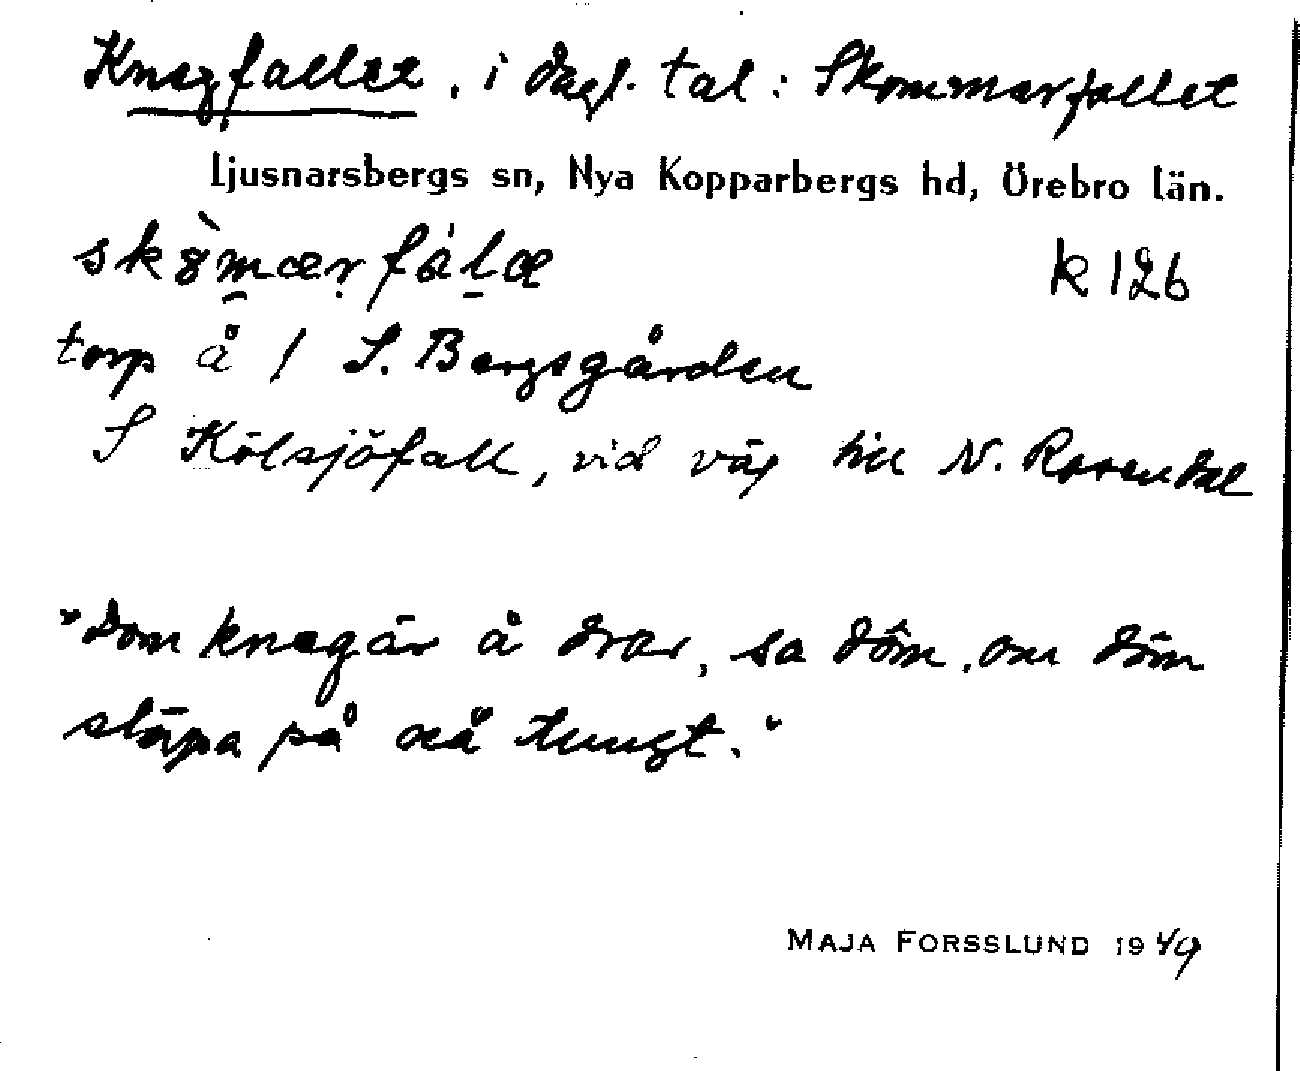 Knegfallet, i dagl. tal: Skommarfallet
Ljusnarsbergs sn, Nya Kopparbergs hd, Örebro län.
k 126
torp å 1 S. Bergsgården
S Kölsjöfall, vid väg till N. Rosendal
"dom knegär å drar, sa dôm, om dôm
släpa på nå tungt."
MAJA FORSSLUND 1949